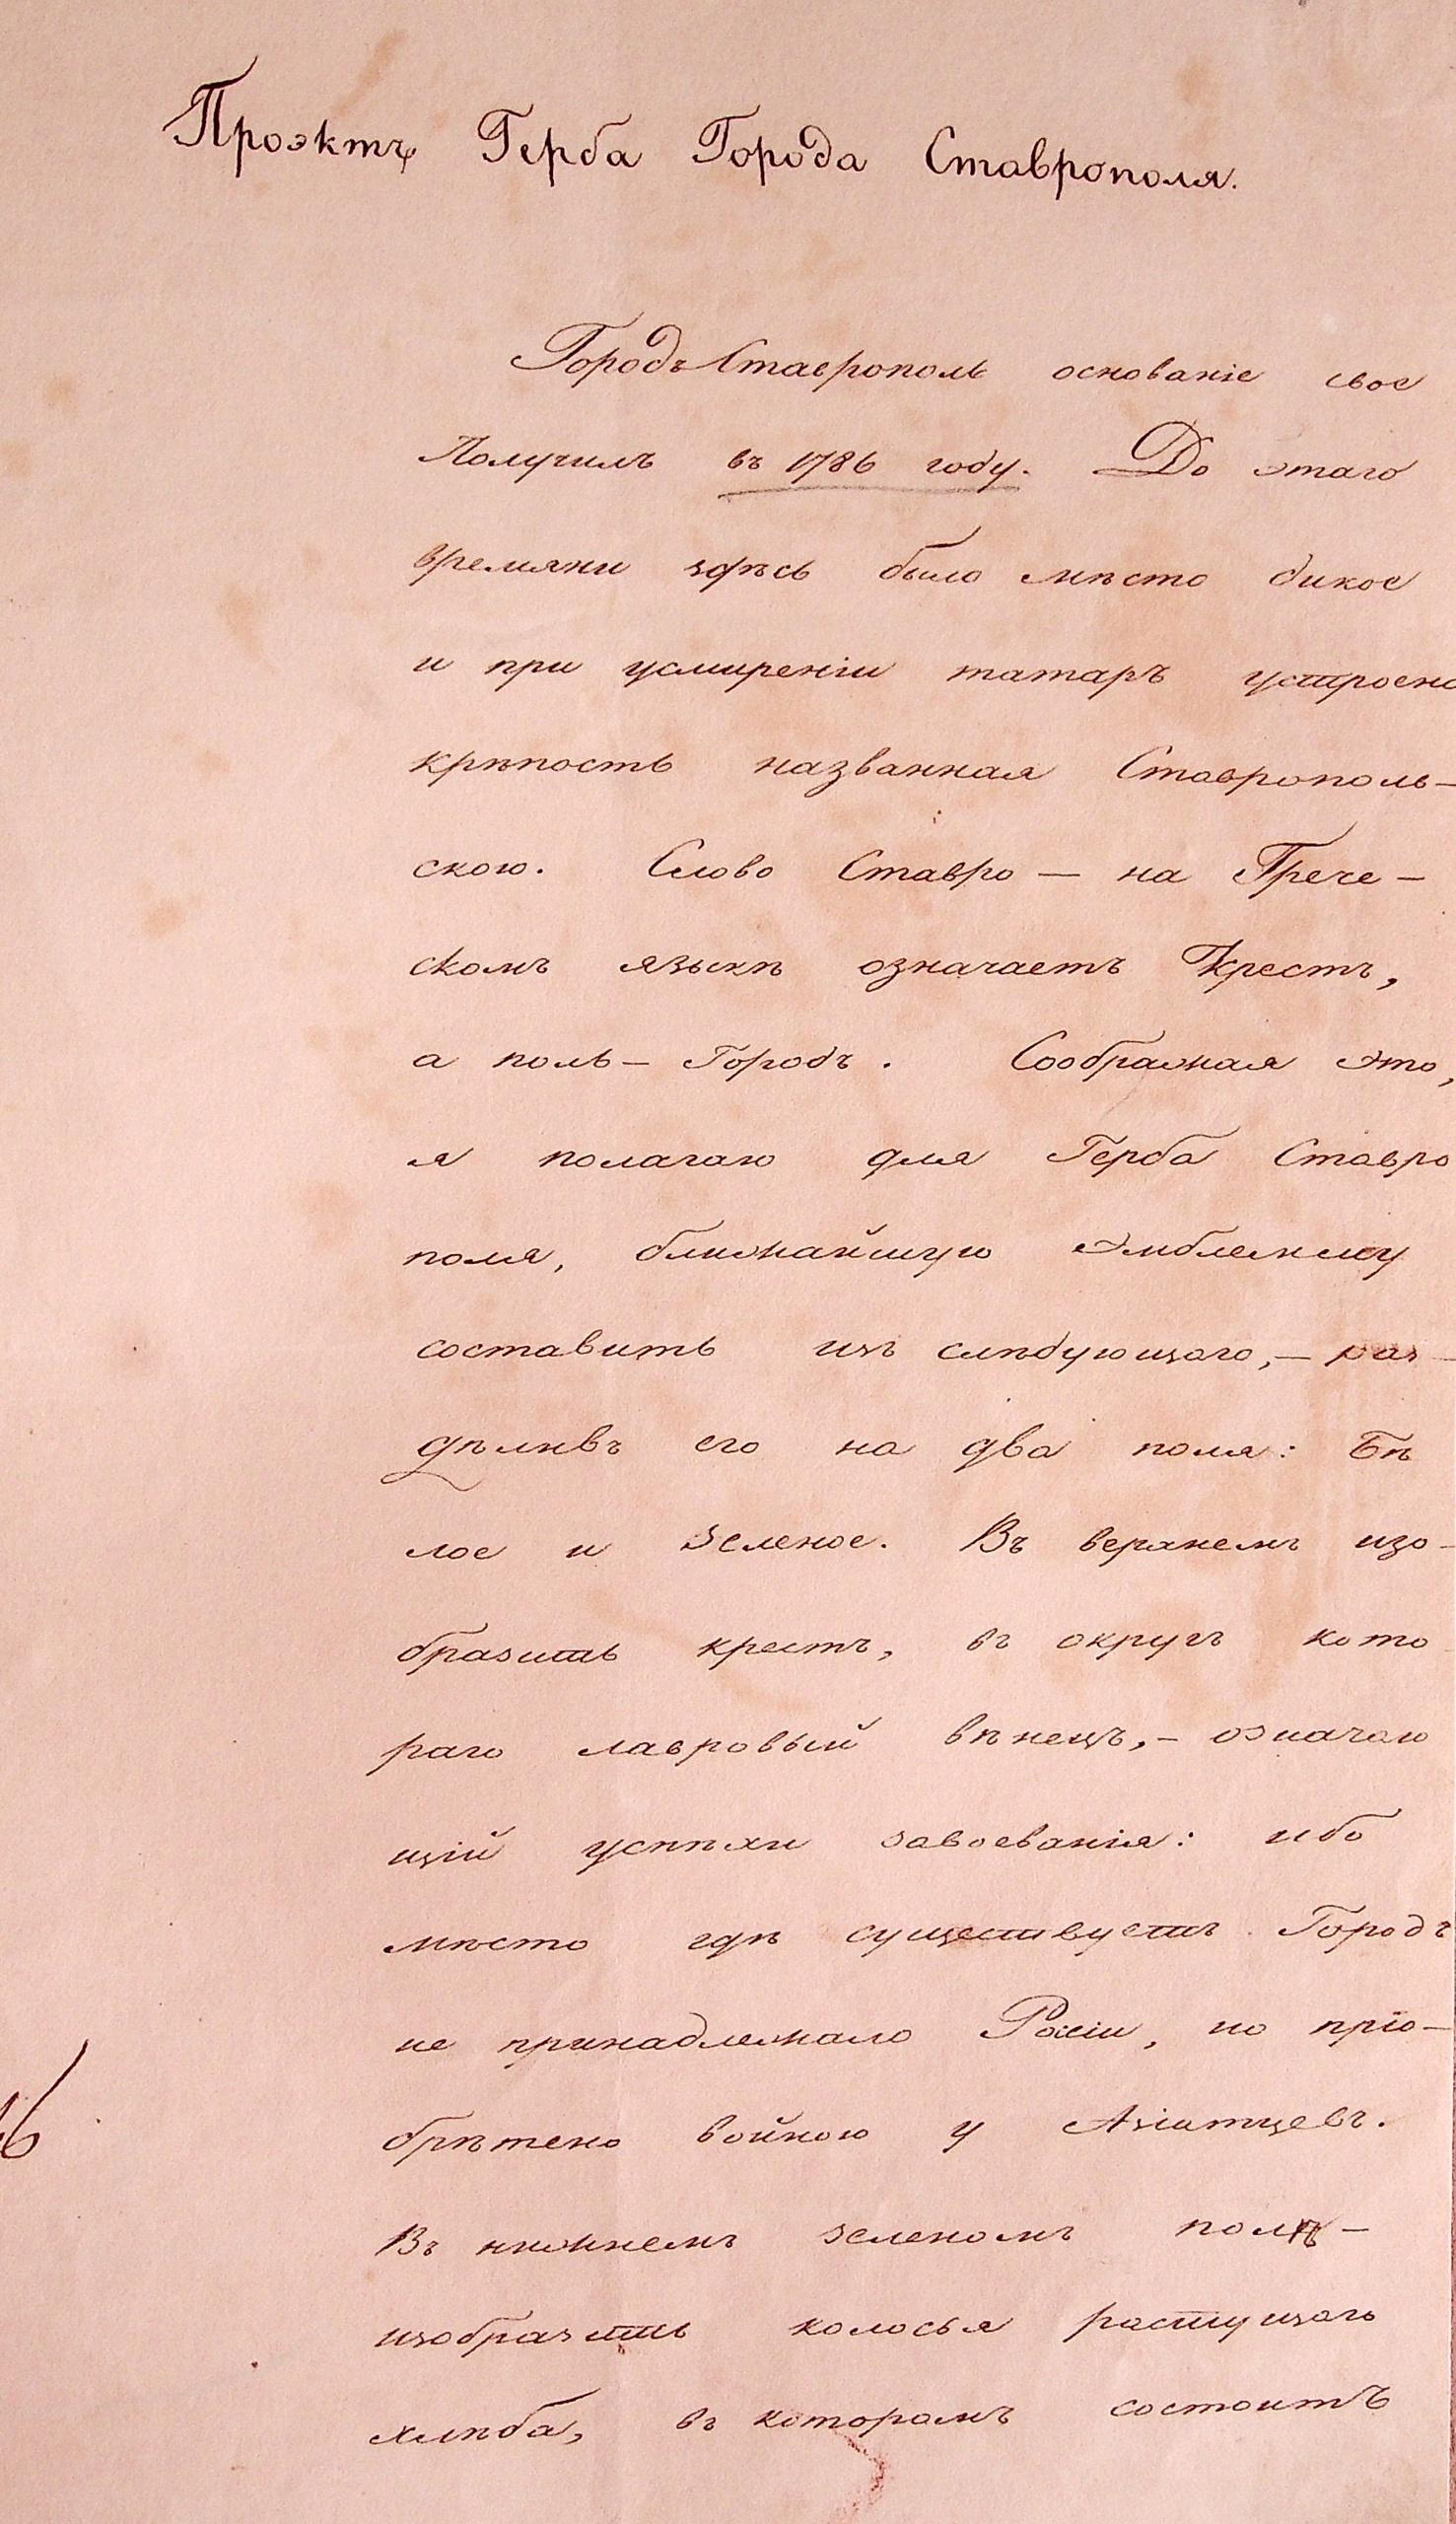 Проэктъ Герба Города Ставрополя.
Городъ Ставрополь основаніе свое
Получилъ въ 1786 году. До этаго
времяни здѣсь было мѣсто дикое
и при усмиреніи татаръ устроена
крѣпость названная Ставрополь-
скою. Слово Ставро — на Грече-
скомъ языкѣ означаетъ Крестъ,
а поль — Городъ. Соображая это,
я полагаю для Герба Ставро
поля, ближайшую Эмблемму
составить изъ слѣдующаго, — раз-
дѣливъ его на два поля: Бѣ
лое и Зеленое. Въ верхнемъ изо-
бразить крестъ, въ округъ кото
раго лавровый вѣнецъ, — означаю
щій успѣхи завоеванія: ибо
мѣсто гдѣ существуетъ Городъ
не принадлежало Росіи, но пріо-
брѣтено войною у Азіатцевъ.
Въ нижнемъ зеленомъ полѣ —
изобразить колосья растущаго
хлѣба, въ которомъ состоитъ